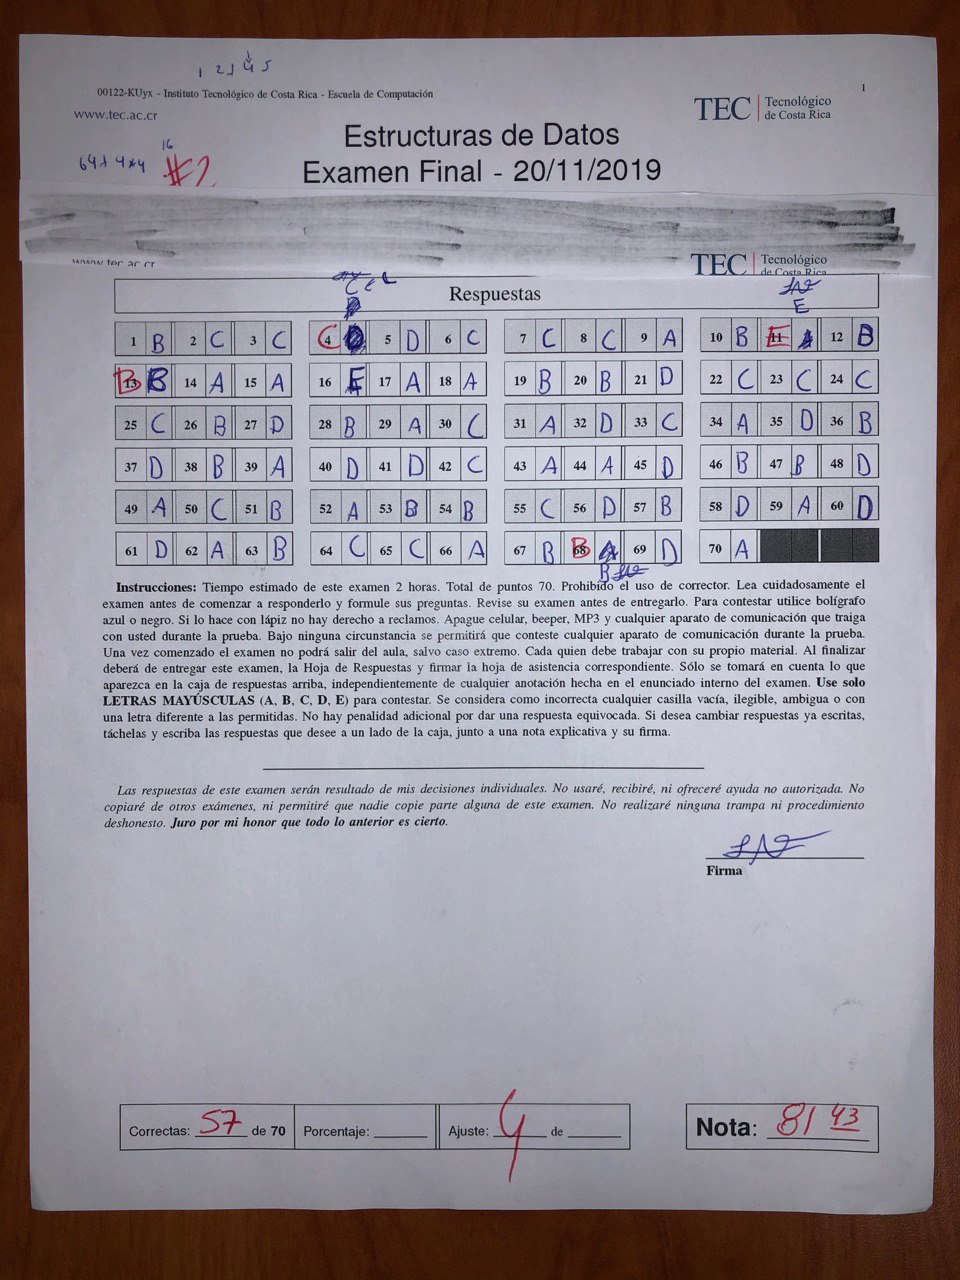 1 2 3 4 5
00122-KUyx - Instituto Tecnológico de Costa Rica - Escuela de Computación
1
www.tec.ac.cr
TEC | Tecnológico de Costa Rica
Estructuras de Datos
64 + 4*4 16 #2
Examen Final - 20/11/2019
www.tec.ac.cr
TEC | Tecnológico de Costa Rica
Respuestas
E
1 B 2 C 3 C C 4 5 D 6 C 7 C 8 C 9 A 10 B E 11 A 12 B
B 13 B 14 A 15 A 16 E 17 A 18 A 19 B 20 B 21 D 22 C 23 C 24 C
25 C 26 B 27 D 28 B 29 A 30 C 31 A 32 D 33 C 34 A 35 D 36 B
37 D 38 B 39 A 40 D 41 D 42 C 43 A 44 A 45 D 46 B 47 B 48 D
49 A 50 C 51 B 52 A 53 B 54 B 55 C 56 D 57 B 58 D 59 A 60 D
61 D 62 A 63 B 64 C 65 C 66 A 67 B B 68 69 D 70 A
B
Instrucciones: Tiempo estimado de este examen 2 horas. Total de puntos 70. Prohibido el uso de corrector. Lea cuidadosamente el
examen antes de comenzar a responderlo y formule sus preguntas. Revise su examen antes de entregarlo. Para contestar utilice bolígrafo
azul o negro. Si lo hace con lápiz no hay derecho a reclamos. Apague celular, beeper, MP3 y cualquier aparato de comunicación que traiga
con usted durante la prueba. Bajo ninguna circunstancia se permitirá que conteste cualquier aparato de comunicación durante la prueba.
Una vez comenzado el examen no podrá salir del aula, salvo caso extremo. Cada quien debe trabajar con su propio material. Al finalizar
deberá de entregar este examen, la Hoja de Respuestas y firmar la hoja de asistencia correspondiente. Sólo se tomará en cuenta lo que
aparezca en la caja de respuestas arriba, independientemente de cualquier anotación hecha en el enunciado interno del examen. Use solo
LETRAS MAYÚSCULAS (A, B, C, D, E) para contestar. Se considera como incorrecta cualquier casilla vacía, ilegible, ambigua o con
una letra diferente a las permitidas. No hay penalidad adicional por dar una respuesta equivocada. Si desea cambiar respuestas ya escritas,
táchelas y escriba las respuestas que desee a un lado de la caja, junto a una nota explicativa y su firma.
Las respuestas de este examen serán resultado de mis decisiones individuales. No usaré, recibiré, ni ofreceré ayuda no autorizada. No
copiaré de otros exámenes, ni permitiré que nadie copie parte alguna de este examen. No realizaré ninguna trampa ni procedimiento
deshonesto. Juro por mi honor que todo lo anterior es cierto.
Firma
Correctas: 57 de 70 Porcentaje: Ajuste: 4 de Nota: 81 43